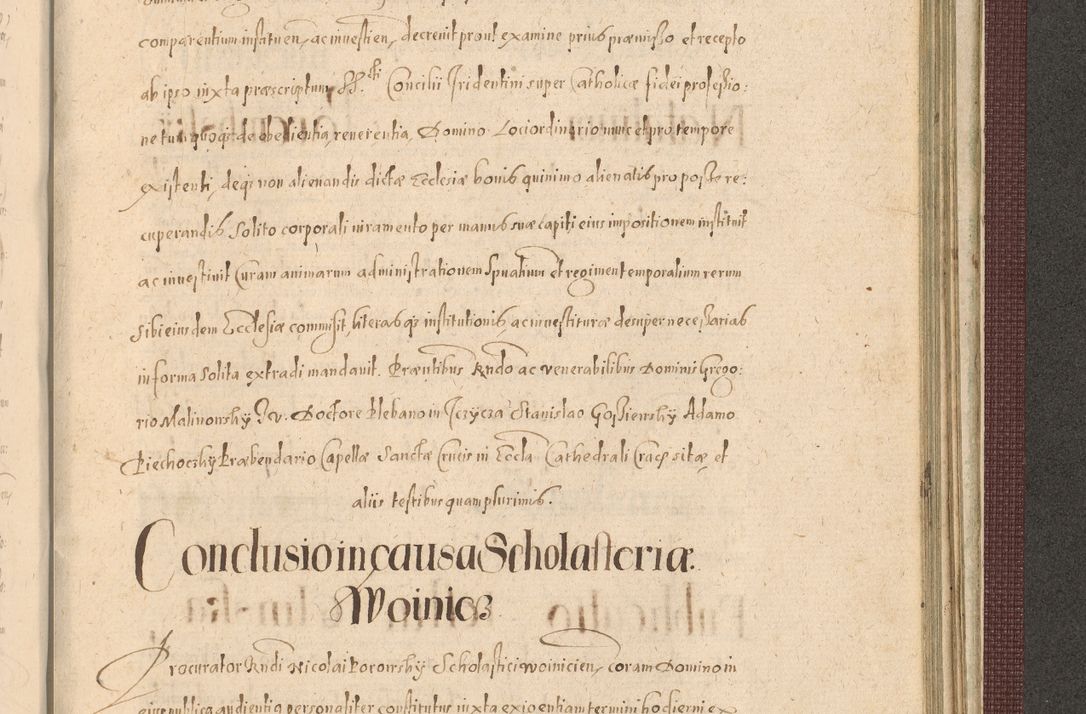 comparentium instituen, ac investien, decrevit prout examine prius præmisso et recepto
ab ipso iuxta præscriptum SS.cti Concilii Tridentini super Catholicæ fidei professio:
ne tum quoq; de obedientia, reverentia, Domino Lociordinario nunc et pro tempore
existenti, deq; non alienandis dictæ Ecclesiæ bonis quinimo alienatis pro posse re:
cuperandis solito corporali iuramento per manus suæ capiti eius impositionem instituit
ac investivit Curam animarum administrationem Spualium et regimen temporalium rerum
sibi eiusdem Ecclesiæ commisit, literasq; institutionis, ac investituræ desuper necessarias
in forma solita extradi mandavit. Præntibus Rndo ac venerabilibus Dominis Grego:
rio Malinowsky I.V. Doctore Plebano in Jczycza Stanislao Gossiewsky Adamo
Piechocsky Præbendario Capellæ Sanctæ Crucis in Eccla Cathedrali Crac. sitæ et
aliis testibus quamplurimis.
Conclusio in causa Scholasteriæ
Woinicz
Procurator Rndi Nicolai Borowsky Scholastici woinicien, coram Domino in
eius publica audientia personaliter constitutus iuxta exigentiam termini hodierni ex